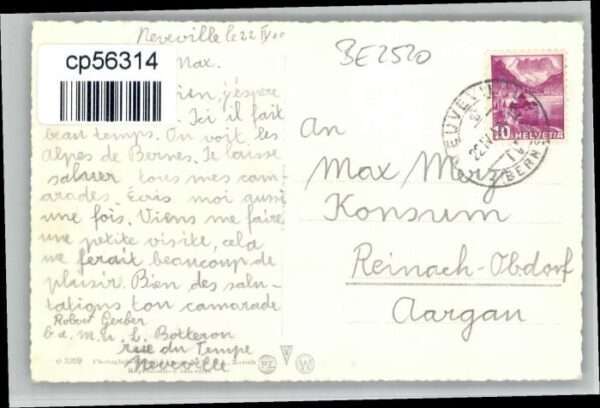 Neveville le 22 IV
cp56314
BE2520
Max.
bien, j'éspère
Ici il fait
beau temps. On voit les
Alpes de Bernes. Je laisse
saluer tous mes cam-
arades. Écris moi aussi
une fois. Viens me faire
une petite visite, cela
me ferait beaucoup de
plaisir. Bien des salu-
tations ton camarade
Robert Gerber
b. d. M. L. Botteron
rue du Tempe
Neveville
10 HELVETIA
NEUVEVILLE
22.IV
(BERNE)
An
Max Merz
Konsum
Reinach-Obdorf
Aargau